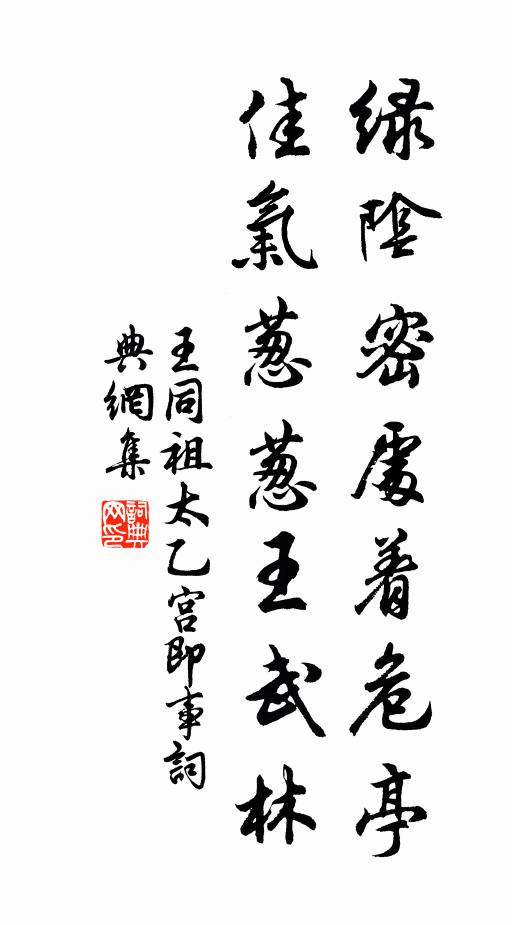 绿陰密處着危亭
佳氣葱葱王武林
王同祖太乙宫即事詞
典網集
詞典网印